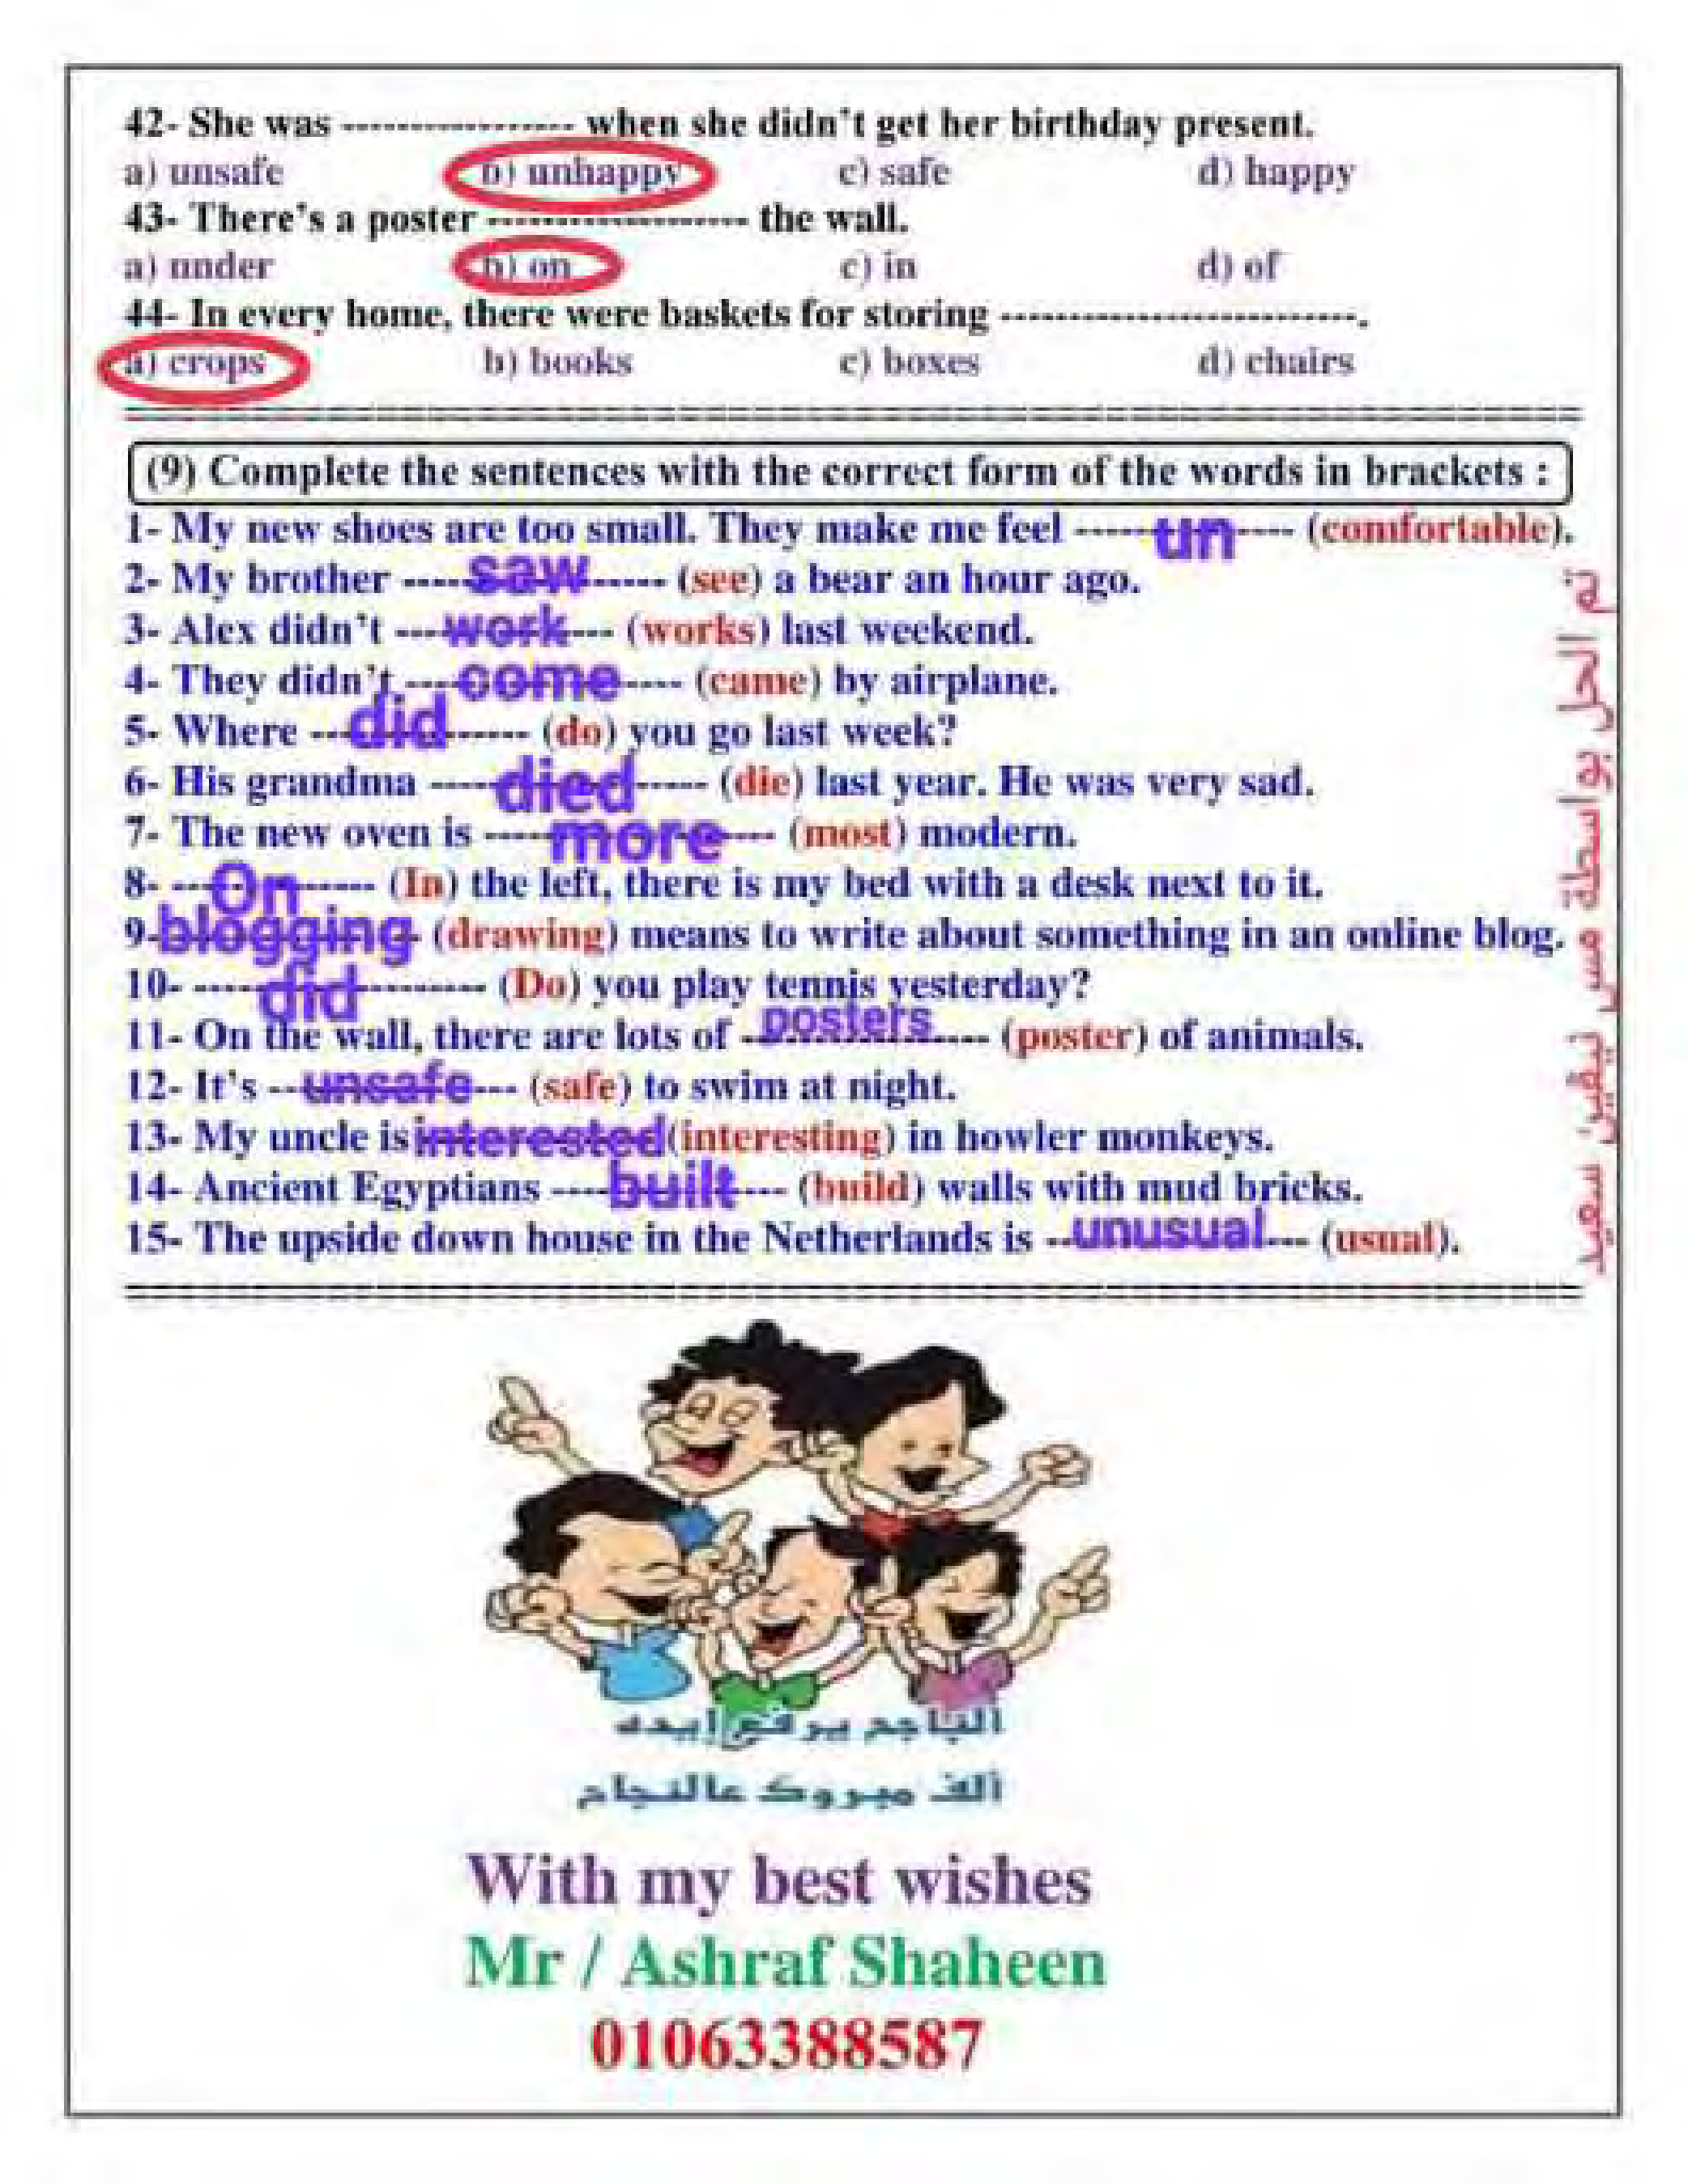 42- She was ----------------- when she didn't get her birthday present.
a) unsafe b) unhappy c) safe d) happy
43- There's a poster ------------------- the wall.
a) under b) on c) in d) of
44- In every home, there were baskets for storing --------------------------.
a) crops b) books c) boxes d) chairs
(9) Complete the sentences with the correct form of the words in brackets :
1- My new shoes are too small. They make me feel ------un---- (comfortable).
2- My brother ----saw----- (see) a bear an hour ago.
3- Alex didn't ---work--- (works) last weekend.
4- They didn't ---come---- (came) by airplane.
5- Where ---did------ (do) you go last week?
6- His grandma ----died----- (die) last year. He was very sad.
7- The new oven is ----more---- (most) modern.
8- ---On------ (In) the left, there is my bed with a desk next to it.
9-blogging- (drawing) means to write about something in an online blog.
10- -----did--------- (Do) you play tennis yesterday?
11- On the wall, there are lots of --posters---- (poster) of animals.
12- It's --unsafe--- (safe) to swim at night.
13- My uncle is interested (interesting) in howler monkeys.
14- Ancient Egyptians ----built--- (build) walls with mud bricks.
15- The upside down house in the Netherlands is --unusual--- (usual).
تم الحل بواسطة مس نيفين سعيد
الناجح يرفع إيده
ألف مبروك عالنجاح
With my best wishes
Mr / Ashraf Shaheen
01063388587